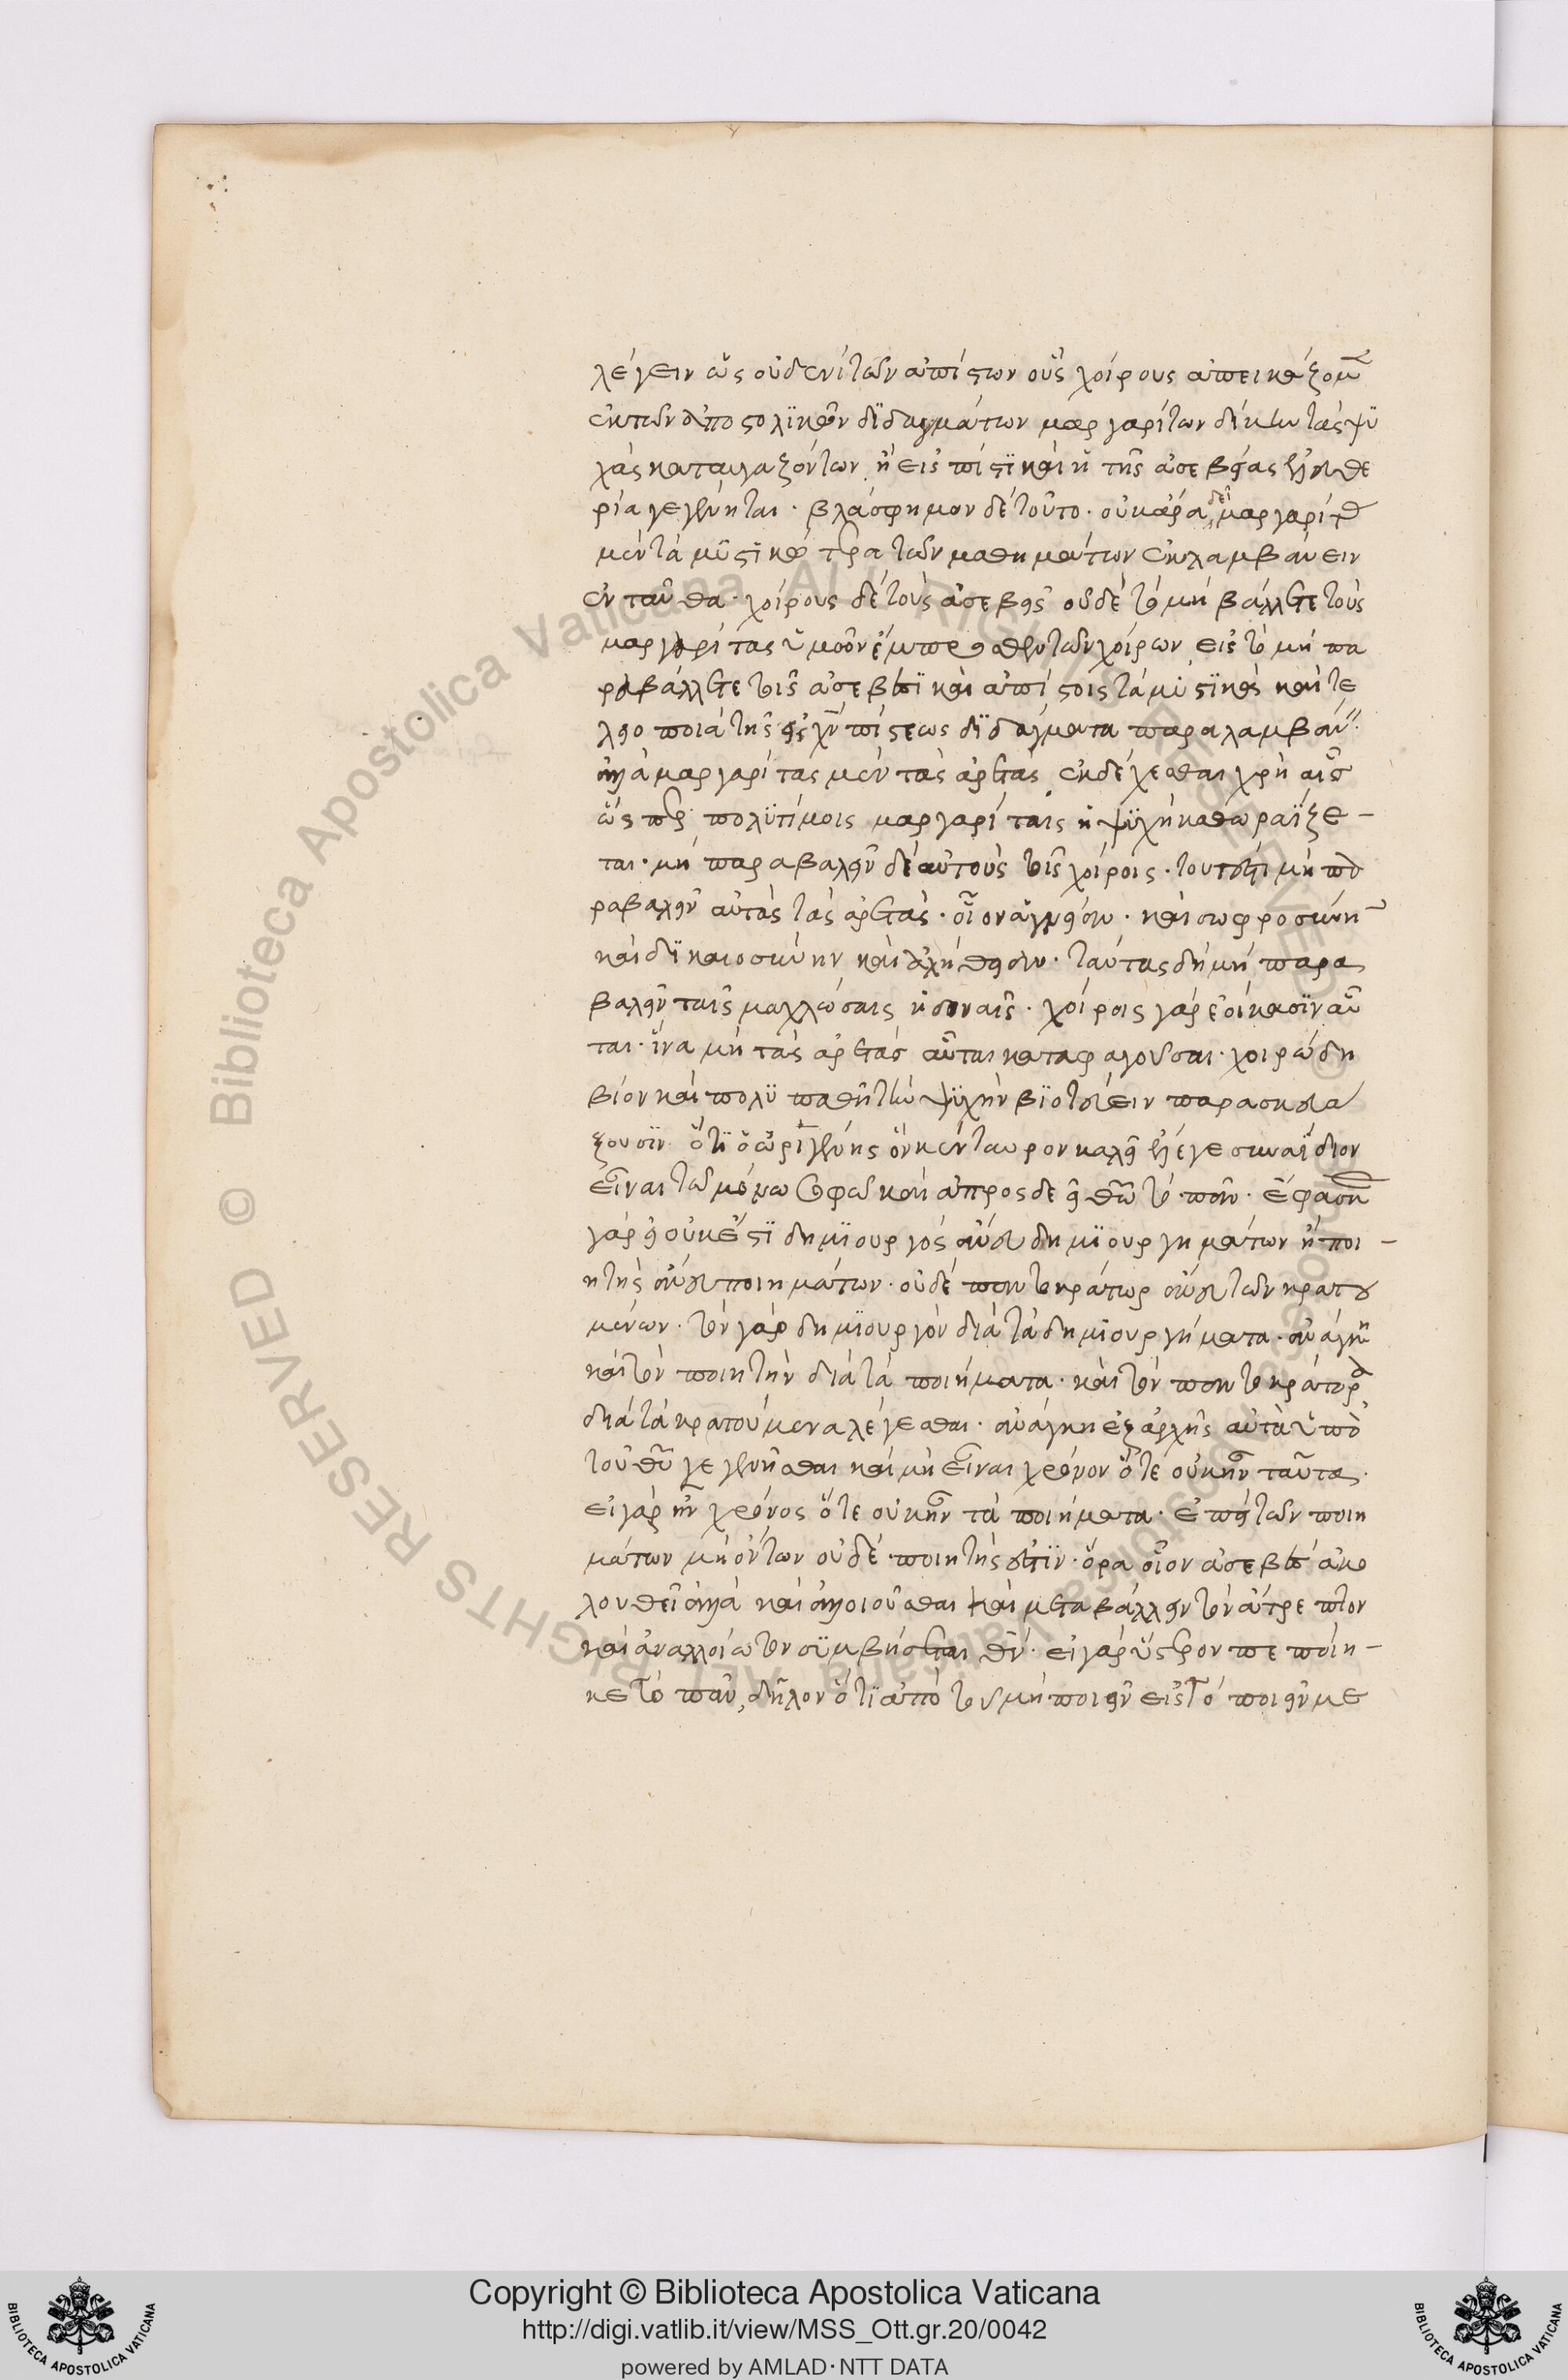 λέγειν ὡς οὐδενὶ τῶν ἀπίστων οὓς χοίρους ἀπεικάζομ
ἐκ τῶν ἀποστολϊκῶν δϊδαγμάτων μαργαρίτων δίκην τὰς ψϋ
χὰς καταυγαζόντων, ἡ εἰς πίστϊ καὶ ἡ τῆς ἀσεβείας ἐλευθε
ρία γεγένηται · βλάσφημον δὲ τοῦτο · οὐκ ἄρα δεῖ μαργαρίτας
μὲν τὰ μυστικώτερα τῶν μαθημάτων ἐκλαμβάνειν
ἐνταῦθα · χοίρους δὲ τοὺς ἀσεβεῖς οὐδὲ τὸ μὴ βάλλετε τοὺς
μαργαρίτας ὑμῶν ἔμπροσθεν τῶν χοίρων εἰς τὸ μὴ πα
ραβάλλετε τοῖς ἀσεβέσϊ καὶ ἀπίστοις τὰ μυστϊκὰ καὶ τε
λειοποιὰ τῆς εἰς χν πίστεως δϊδάγματα παραλαμβάν
ἀλλὰ μαργαρίτας μὲν τὰς ἀρετὰς ἐκδέχεσθαι χρὴ αἷς
ὥσπερ πολϋτίμοις μαργαρίταις ἡ ψϋχὴ καθωραΐζε-
ται · μὴ παραβαλεῖν δὲ αὐτοὺς τοῖς χοίροις · τουτέστι μὴ πα
ραβαλεῖν αὐτὰς τὰς ἀρετὰς · οἷον ἁγνείαν · καὶ σωφροσύνη
καὶ δϊκαιοσύνην καὶ ἀλήθειαν · ταύτας δὴ μὴ παρα
βαλεῖν ταῖς μαχλώσαις ἡδοναῖς · χοίροις γὰρ ἐοίκασϊν αὗ
ται · ἵνα μὴ τὰς ἀρετὰς αὗται καταφαγοῦσαι · χοιρώδη
βίον καὶ πολϋπαθῆ τὴν ψϋχὴν βϊοτεύειν παρασκευά
ζουσϊν · ὅτϊ ὁ ὠριγένης ὃν κένταυρον καλεῖ ἔλεγε συναΐδιον
εἶναι τῶ μόνω σοφῶ καὶ ἀπροσδεεῖ θῶ τὸ πᾶν · ἔφασκε
γὰρ εἰ οὐκ ἔστϊ δημϊουργὸς ἄνευ δημϊουργημάτων ἢ ποι-
ητὴς ἄνευ ποιημάτων · οὐδὲ παντοκράτωρ ἄνευ τῶν κρατου
μένων · τὸν γὰρ δημϊουργὸν διὰ τὰ δημϊουργήματα · ἀνάγκη
καὶ τὸν ποιητὴν διὰ τὰ ποιήματα · καὶ τὸν παντοκράτορα
διὰ τὰ κρατούμενα λέγεσθαι · ἀνάγκη ἐξ ἀρχῆς αὐτὰ ὑπὸ
τοῦ θῦ γεγενῆσθαι καὶ μὴ εἶναι χρόνον ὅτε οὐκ ἦν ταῦτα ·
εἰ γὰρ ἦν χρόνος ὅτε οὐκ ἦν τὰ ποιήματα · ἐπεὶ τῶν ποιη
μάτων μὴ ὄντων οὐδὲ ποιητής ἐστϊν · ὅρα οἷον ἀσεβὲς ἀκο
λουθεῖ ἀλλὰ καὶ ἀλλοιοῦσθαι καὶ μεταβάλλειν τὸν ἄτρεπτον
καὶ ἀναλλοίωτον σϋμβήσεται θν · εἰ γὰρ ὕστερον πεποίη-
κε τὸ πᾶν, δῆλον ὅτϊ ἀπὸ τοῦ μὴ ποιεῖν εἰς τὸ ποιεῖν με
Copyright © Biblioteca Apostolica Vaticana
http://digi.vatlib.it/view/MSS_Ott.gr.20/0042
powered by AMLAD·NTT DATA